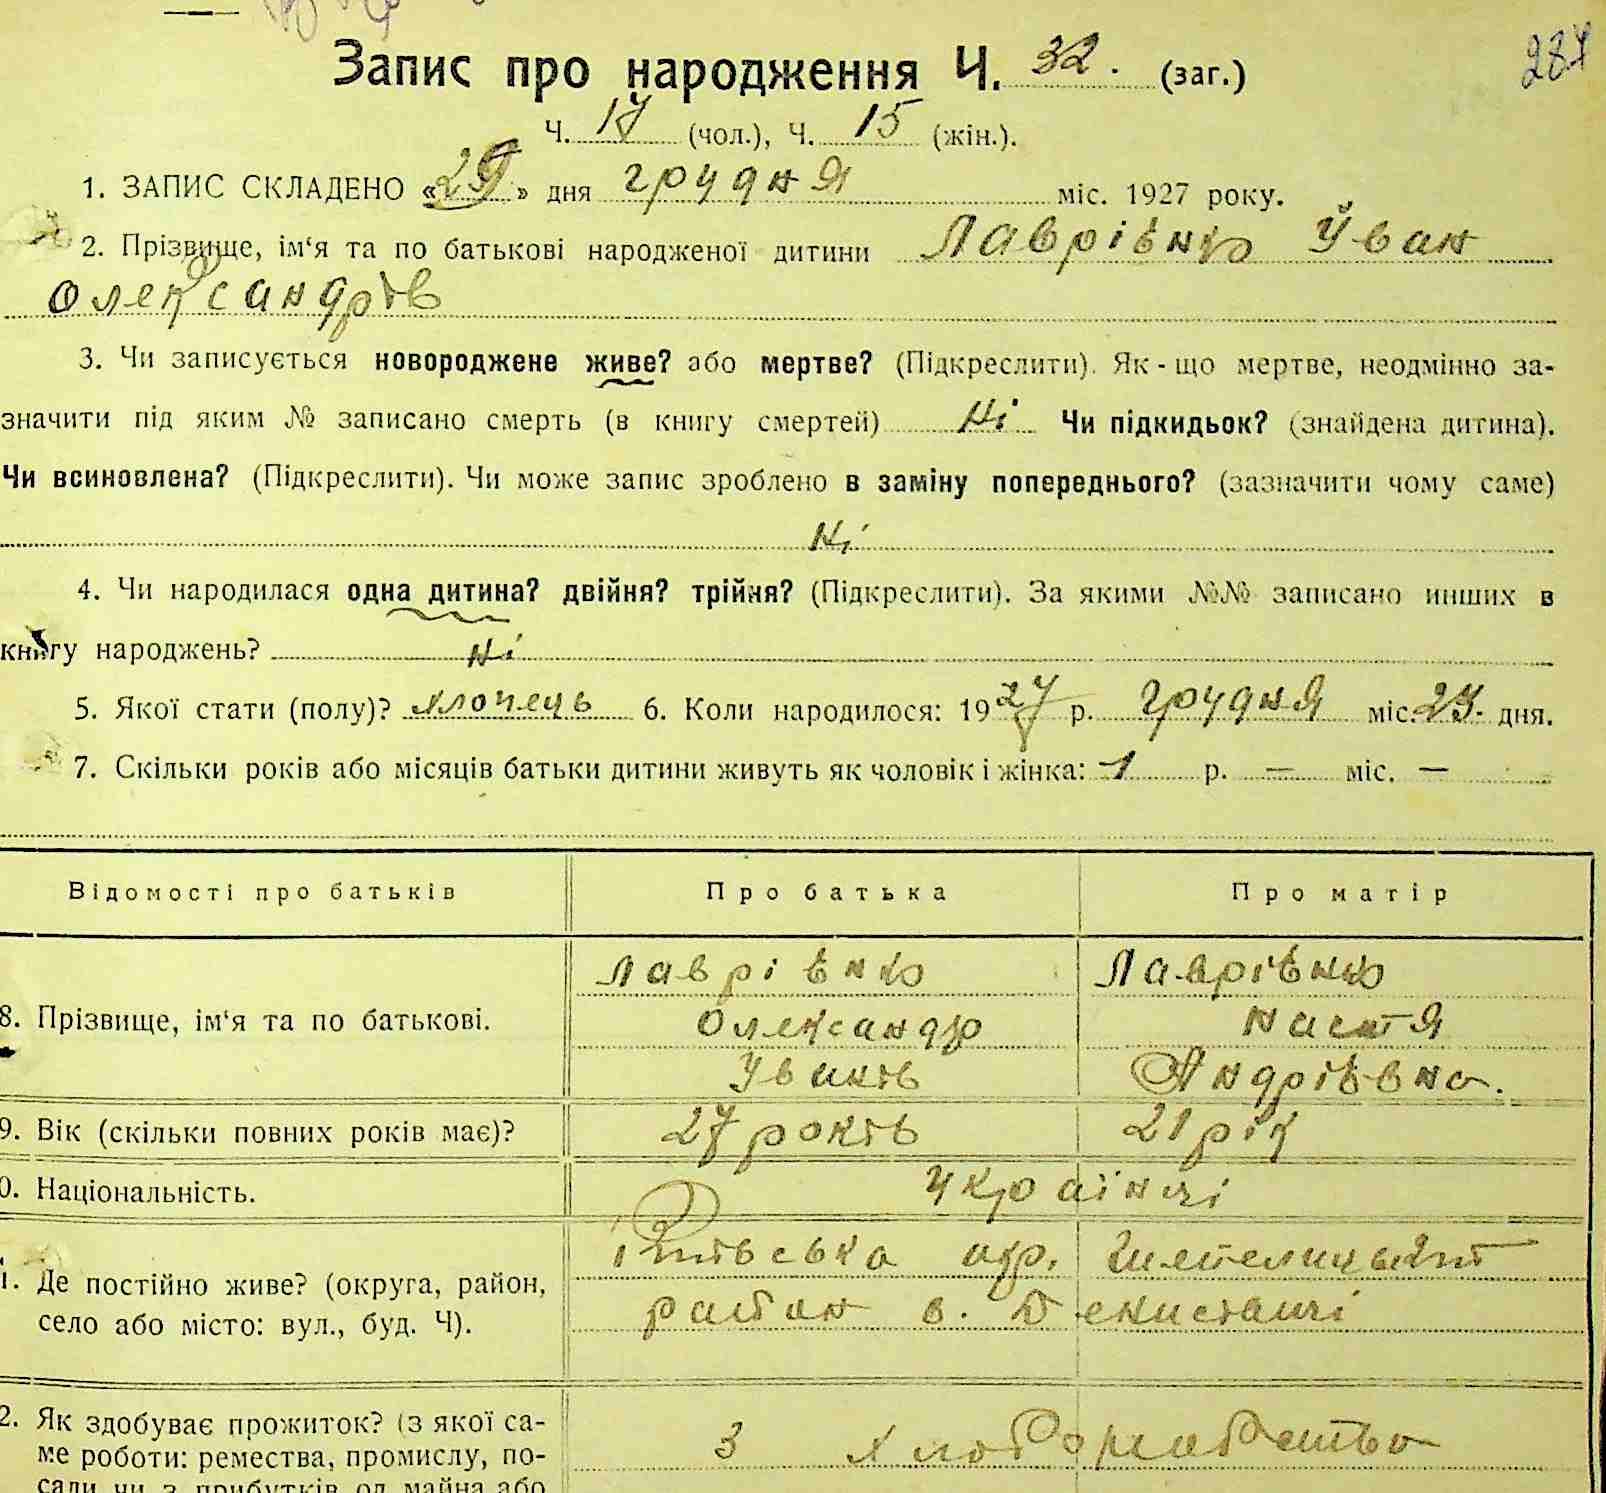 287
Запис про народження Ч. 32. (заг.)
Ч. 17 (чол.), Ч. 15 (жін.).
1. ЗАПИС СКЛАДЕНО «29» дня грудня міс. 1927 року.
2. Прізвище, ім‘я та по батькові народженої дитини Лаврієнко Йван
Олександрів
3. Чи записується новороджене живе? або мертве? (Підкреслити). Як-що мертве, неодмінно за-
значити під яким № записано смерть (в книгу смертей) Ні Чи підкидьок? (знайдена дитина).
Чи всиновлена? (Підкреслити). Чи може запис зроблено в заміну попереднього? (зазначити чому саме)
Ні
4. Чи народилася одна дитина? двійня? трійня? (Підкреслити). За якими №№ записано инших в
книгу народжень? Ні
5. Якої стати (полу)? хлопець 6. Коли народилося: 1927 р. грудня міс. 27. дня.
7. Скільки років або місяців батьки дитини живуть як чоловік і жінка: 1 р. — міс. —
Відомості про батьків Про батька Про матір
8. Прізвище, ім‘я та по батькові. Лаврієнко Лаврієнко
Олександр Настя
Уванів Андрієвна.
9. Вік (скільки повних років має)? 27 років 21 рік
0. Національність. Українці
1. Де постійно живе? (округа, район, окр.
село або місто: вул., буд. Ч). район в.
2. Як здобуває прожиток? (з якої са- З хліборобства
ме роботи: ремества, промислу, по-
сади чи з прибутків од майна або